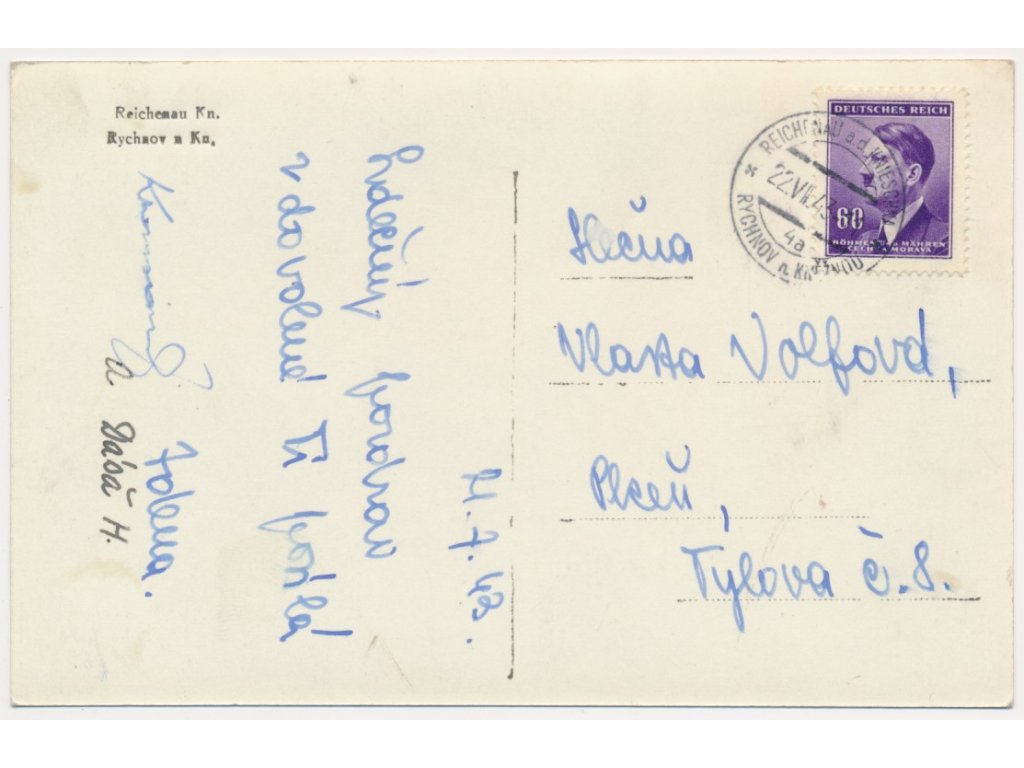 Reichenau Kn.
Rychnov n Kn.
21.7.43.
Srdečný pozdrav
z dovolené Ti posílá
Zdena.
a Dáša H.
DEUTSCHES REICH
60
BÖHMEN u. MÄHREN
ČECHY a MORAVA
REICHENAU a.d. KNIESCHNA
22.VII.43
4a
RYCHNOV n. KNĚŽNOU
Slečna
Vlasta Volfová,
Plzeň,
Tylova č. 8.